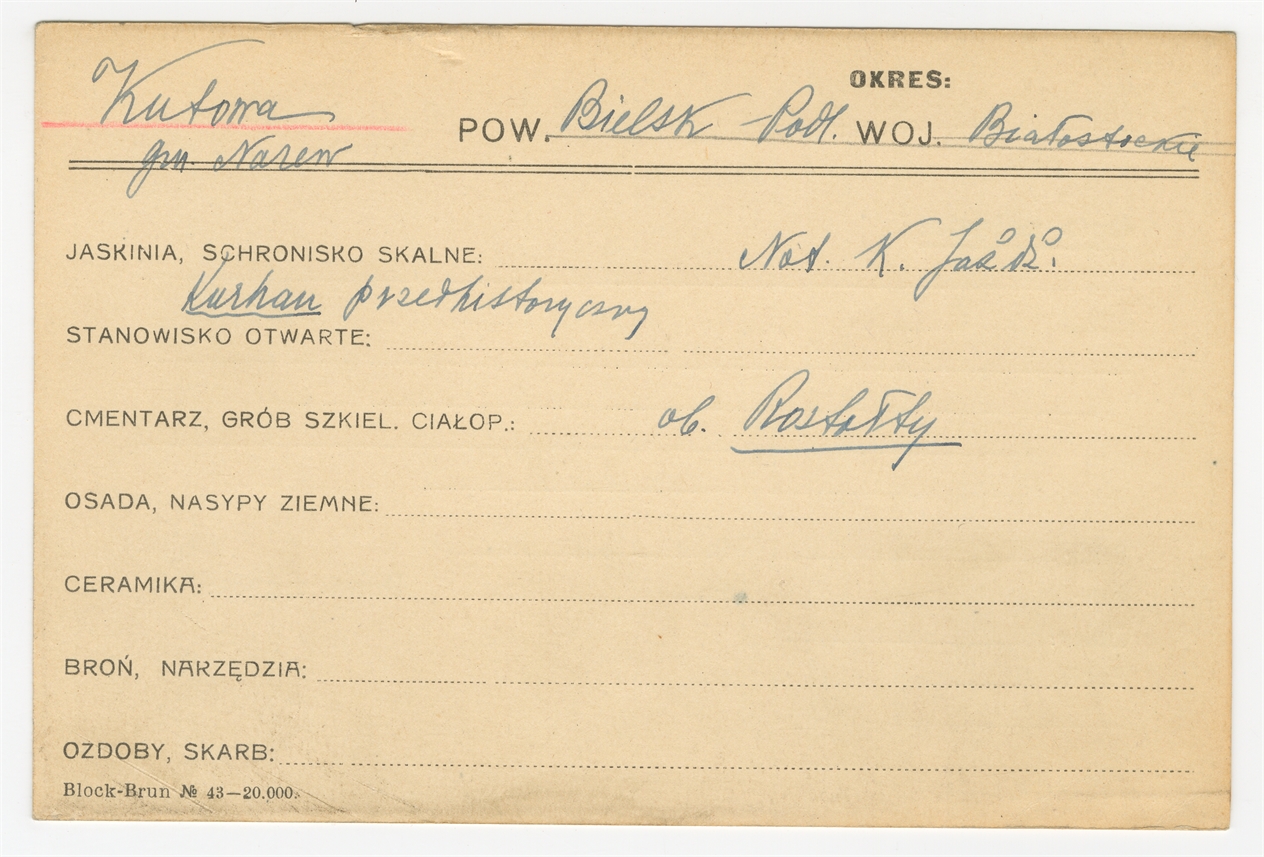 OKRES:
Kutowa
POW. Bielsk Podl. WOJ. Białostockie
gm. Narew
JASKINIA, SCHRONISKO SKALNE: Not. K. Jażdż.
Kurhan przedhistoryczny
STANOWISKO OTWARTE:
CMENTARZ, GRÓB SZKIEL. CIAŁOP.: ob. Rostołty
OSADA, NASYPY ZIEMNE:
CERAMIKA:
BROŃ, NARZĘDZIA:
OZDOBY, SKARB:
Block-Brun № 43—20.000.